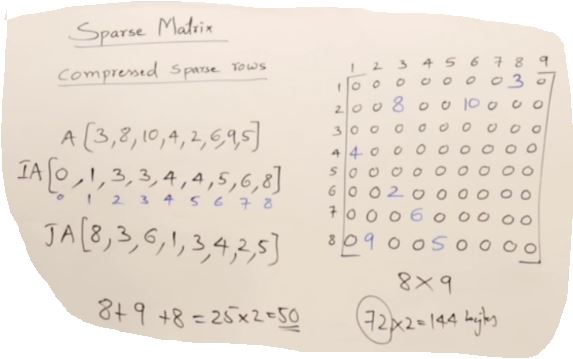 Sparse Matrix
Compressed Sparse rows
A[3,8,10,4,2,6,9,5]
IA[0,1,3,3,4,4,5,6,8]
0 1 2 3 4 5 6 7 8
JA[8,3,6,1,3,4,2,5]
8+9+8=25x2=50
1 2 3 4 5 6 7 8 9
1 0 0 0 0 0 0 0 3 0
2 0 0 8 0 0 10 0 0 0
3 0 0 0 0 0 0 0 0 0
4 4 0 0 0 0 0 0 0 0
5 0 0 0 0 0 0 0 0 0
6 0 0 2 0 0 0 0 0 0
7 0 0 0 6 0 0 0 0 0
8 0 9 0 0 5 0 0 0 0
8x9
72x2=144 bytes